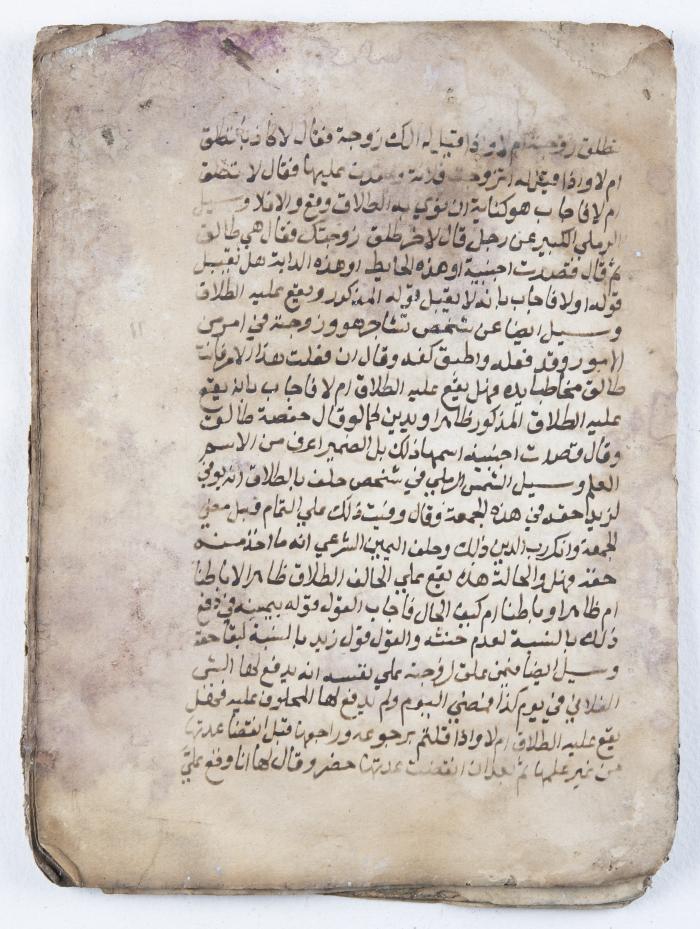 تطلق زوجته ام لا واذا قيل له الك زوجة فقال لا كاذبا تطلق
ام لا واذا قيل له اتزوجت فلانة وعقدت عليها فقال لا تطلق
ام لا فاجاب هو كناية ان نوي به الطلاق وقع والا فلا وسيل
الرملي الكبير عن رجل قال لاخر طلق زوجتك فقال هي طالق
ثم قال قصدت اجنبية او هذه الحايط او هذه الدابة هل يقبل
قوله او لا فاجاب بانه لا يقبل قوله المذكور ويقع عليه الطلاق
وسيل ايضا عن شخص تشاجر هو وزوجته في امر من
الامور وقد فعله واطبق كفه وقال ان فعلت هذا الامر فانت
طالق مخاطبا يده وهل يقع عليه الطلاق ام لا فاجاب بانه يقع
عليه الطلاق المذكور ظاهرا ويدين كما لو قال حفصة طالق
وقال قصدت اجنبية اسمها ذلك بل الضمير اعرف من الاسم
العلم وسيل الشمس الرملي في شخص حلف بالطلاق انه يوفي
لزيد حقه في هذه الجمعة وقال وفيت ذلك علي التمام قبل مضي
الجمعة وانكر رب الدين ذلك وحلف اليمين الشرعي انه ما اخذ منه
حقه وهل والحالة هذه يقع علي الحالف الطلاق ظاهرا لا باطنا
ام ظاهرا وباطنا ام كيف الحال فاجاب القول قوله بيمينه في دفع
ذلك بالنسبة لعدم حنثه والقول قول زيد بالنسبة لبقا حقه
وسيل ايضا فيمن علق لزوجته علي نفسه انه يدفع لها الشي
الفلاني في يوم كذا فمضي اليوم ولم يدفع لها المحلوف عليه فهل
يقع عليه الطلاق ام لا واذا قلتم برجوعه وراجعها قبل انقضا عدتها
من غير علمها ثم بعد ان انقضت عدتها حضر وقال لها انا وقع علي